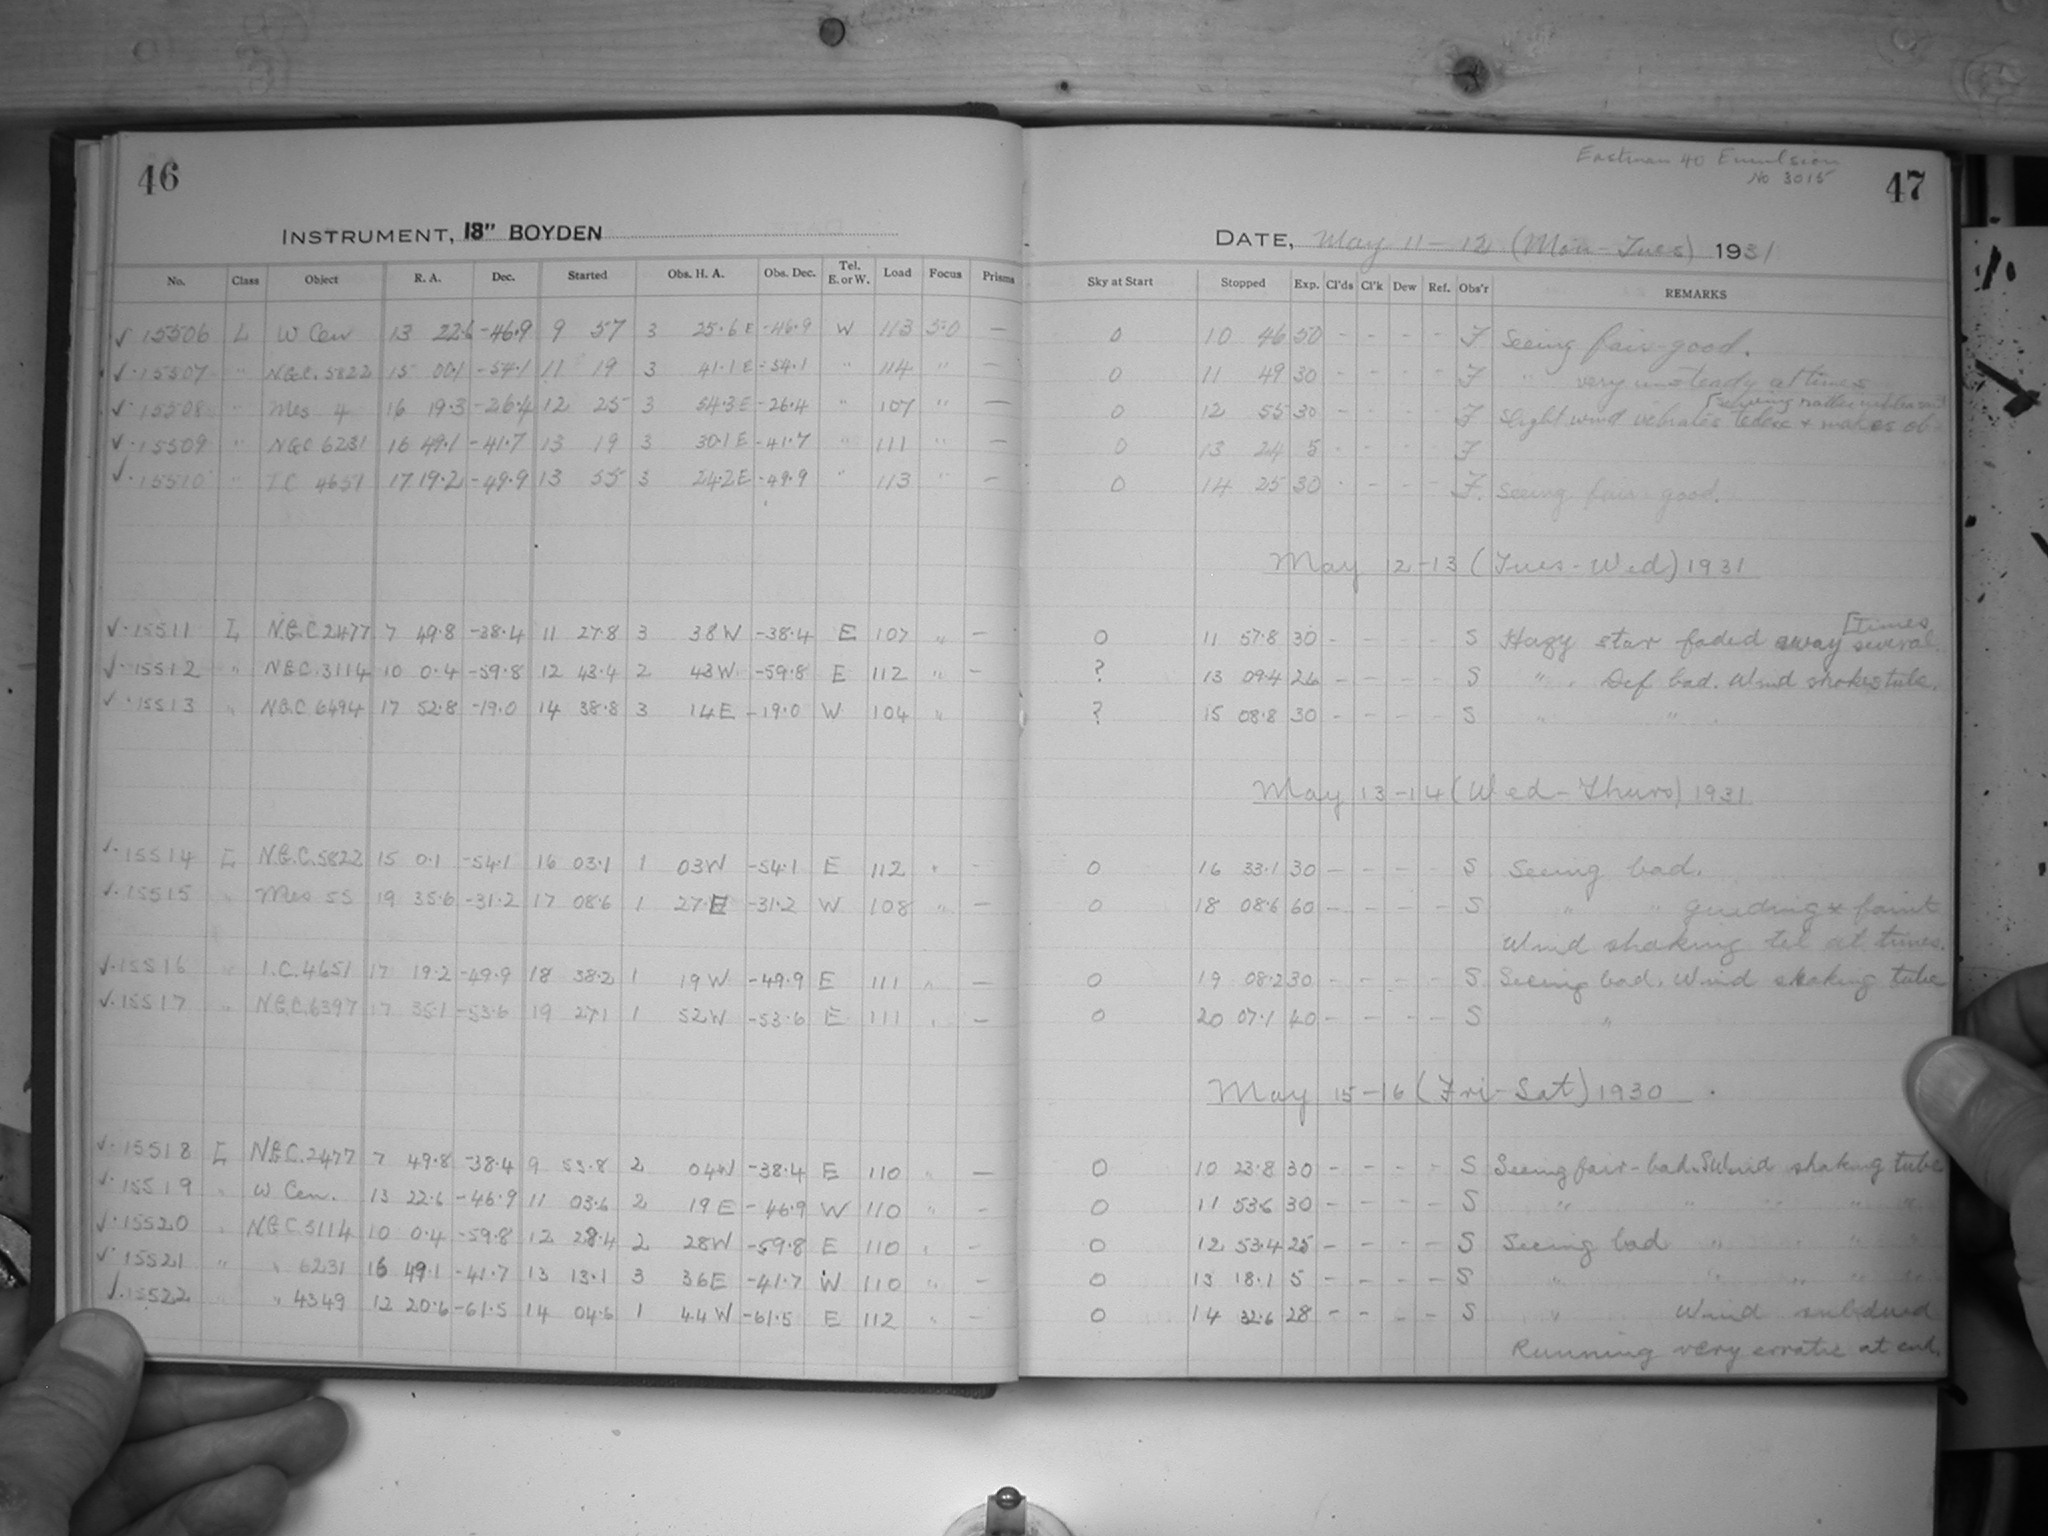 46
INSTRUMENT, 18" BOYDEN
No. Class Object R. A. Dec. Started Obs. H. A. Obs. Dec. Tel. E. or W. Load Focus Prisms
✓ 15506 L W Cen 13 22.6 -46.9 9 57 3 25.6 E -46.9 W 113 5.0 —
✓ 15507 " N.G.C. 5822 15 00.1 -54.1 11 19 3 41.1 E -54.1 " 114 " —
✓ 15508 " Mes 4 16 19.3 -26.4 12 25 3 54.3 E -26.4 " 107 " —
✓ 15509 " NGC 6231 16 49.1 -41.7 13 19 3 30.1 E -41.7 " 111 " —
✓ 15510 " I.C 4651 17 19.2 -49.9 13 55 3 24.2 E -49.9 " 113 " —
✓ 15511 L N.G.C 2477 7 49.8 -38.4 11 27.8 3 38 W -38.4 E 107 " —
✓ 15512 " N.G.C. 3114 10 0.4 -59.8 12 43.4 2 43 W -59.8 E 112 " —
✓ 15513 " N.G.C 6494 17 52.8 -19.0 14 38.8 3 14 E -19.0 W 104 "
✓ 15514 L N.G.C. 5822 15 0.1 -54.1 16 03.1 1 03 W -54.1 E 112 " —
✓ 15515 " Mes 55 19 35.6 -31.2 17 08.6 1 27 E -31.2 W 108 " —
✓ 15516 " I.C. 4651 17 19.2 -49.9 18 38.2 1 19 W -49.9 E 111 " —
✓ 15517 " N.G.C. 6397 17 35.1 -53.6 19 27.1 1 52 W -53.6 E 111 " —
✓ 15518 L N.G.C. 2477 7 49.8 -38.4 9 53.8 2 04 W -38.4 E 110 " —
✓ 15519 " W Cen. 13 22.6 -46.9 11 03.6 2 19 E -46.9 W 110 " —
✓ 15520 " N.G.C 3114 10 0.4 -59.8 12 28.4 2 28 W -59.8 E 110 " —
✓ 15521 " " 6231 16 49.1 -41.7 13 13.1 3 36 E -41.7 W 110 " —
✓ 15522 " " 4349 12 20.6 -61.5 14 04.6 1 44 W -61.5 E 112 " —
Eastman 40 Emulsion
No 3015
47
DATE, May 11 - 12 (Mon - Tues) 1931
Sky at Start Stopped Exp. Cl'ds Cl'k Dew Ref. Obs'r REMARKS
0 10 46 50 - - - - F Seeing fair-good.
0 11 49 30 - - - - F " very unsteady at times
0 12 55 30 - - - - F Slight wind vibrates telesc + makes
0 13 24 5 - - - - F
0 14 25 30 - - - - F. Seeing fair-good.
May 12-13 (Tues-Wed) 1931
[times
0 11 57.8 30 - - - - S Hazy star faded away several
? 13 09.4 26 - - - - S " Def bad. Wind shakes tube.
? 15 08.8 30 - - - - S " "
May 13-14 (Wed-Thurs) 1931
0 16 33.1 30 - - - - S Seeing bad.
0 18 08.6 60 - - - - S " " guiding * faint
Wind shaking tel at times.
0 19 08.2 30 - - - - S Seeing bad. Wind shaking tube
0 20 07.1 40 - - - - S "
May 15-16 (Fri-Sat) 1930
0 10 23.8 30 - - - - S Seeing fair-bad. Wind shaking tube
0 11 53.6 30 - - - - S " " " " "
0 12 53.4 25 - - - - S Seeing bad " " "
0 13 18.1 5 - - - - S " " " " "
0 14 32.6 28 - - - - S " Wind subdued
Running very erratic at end.